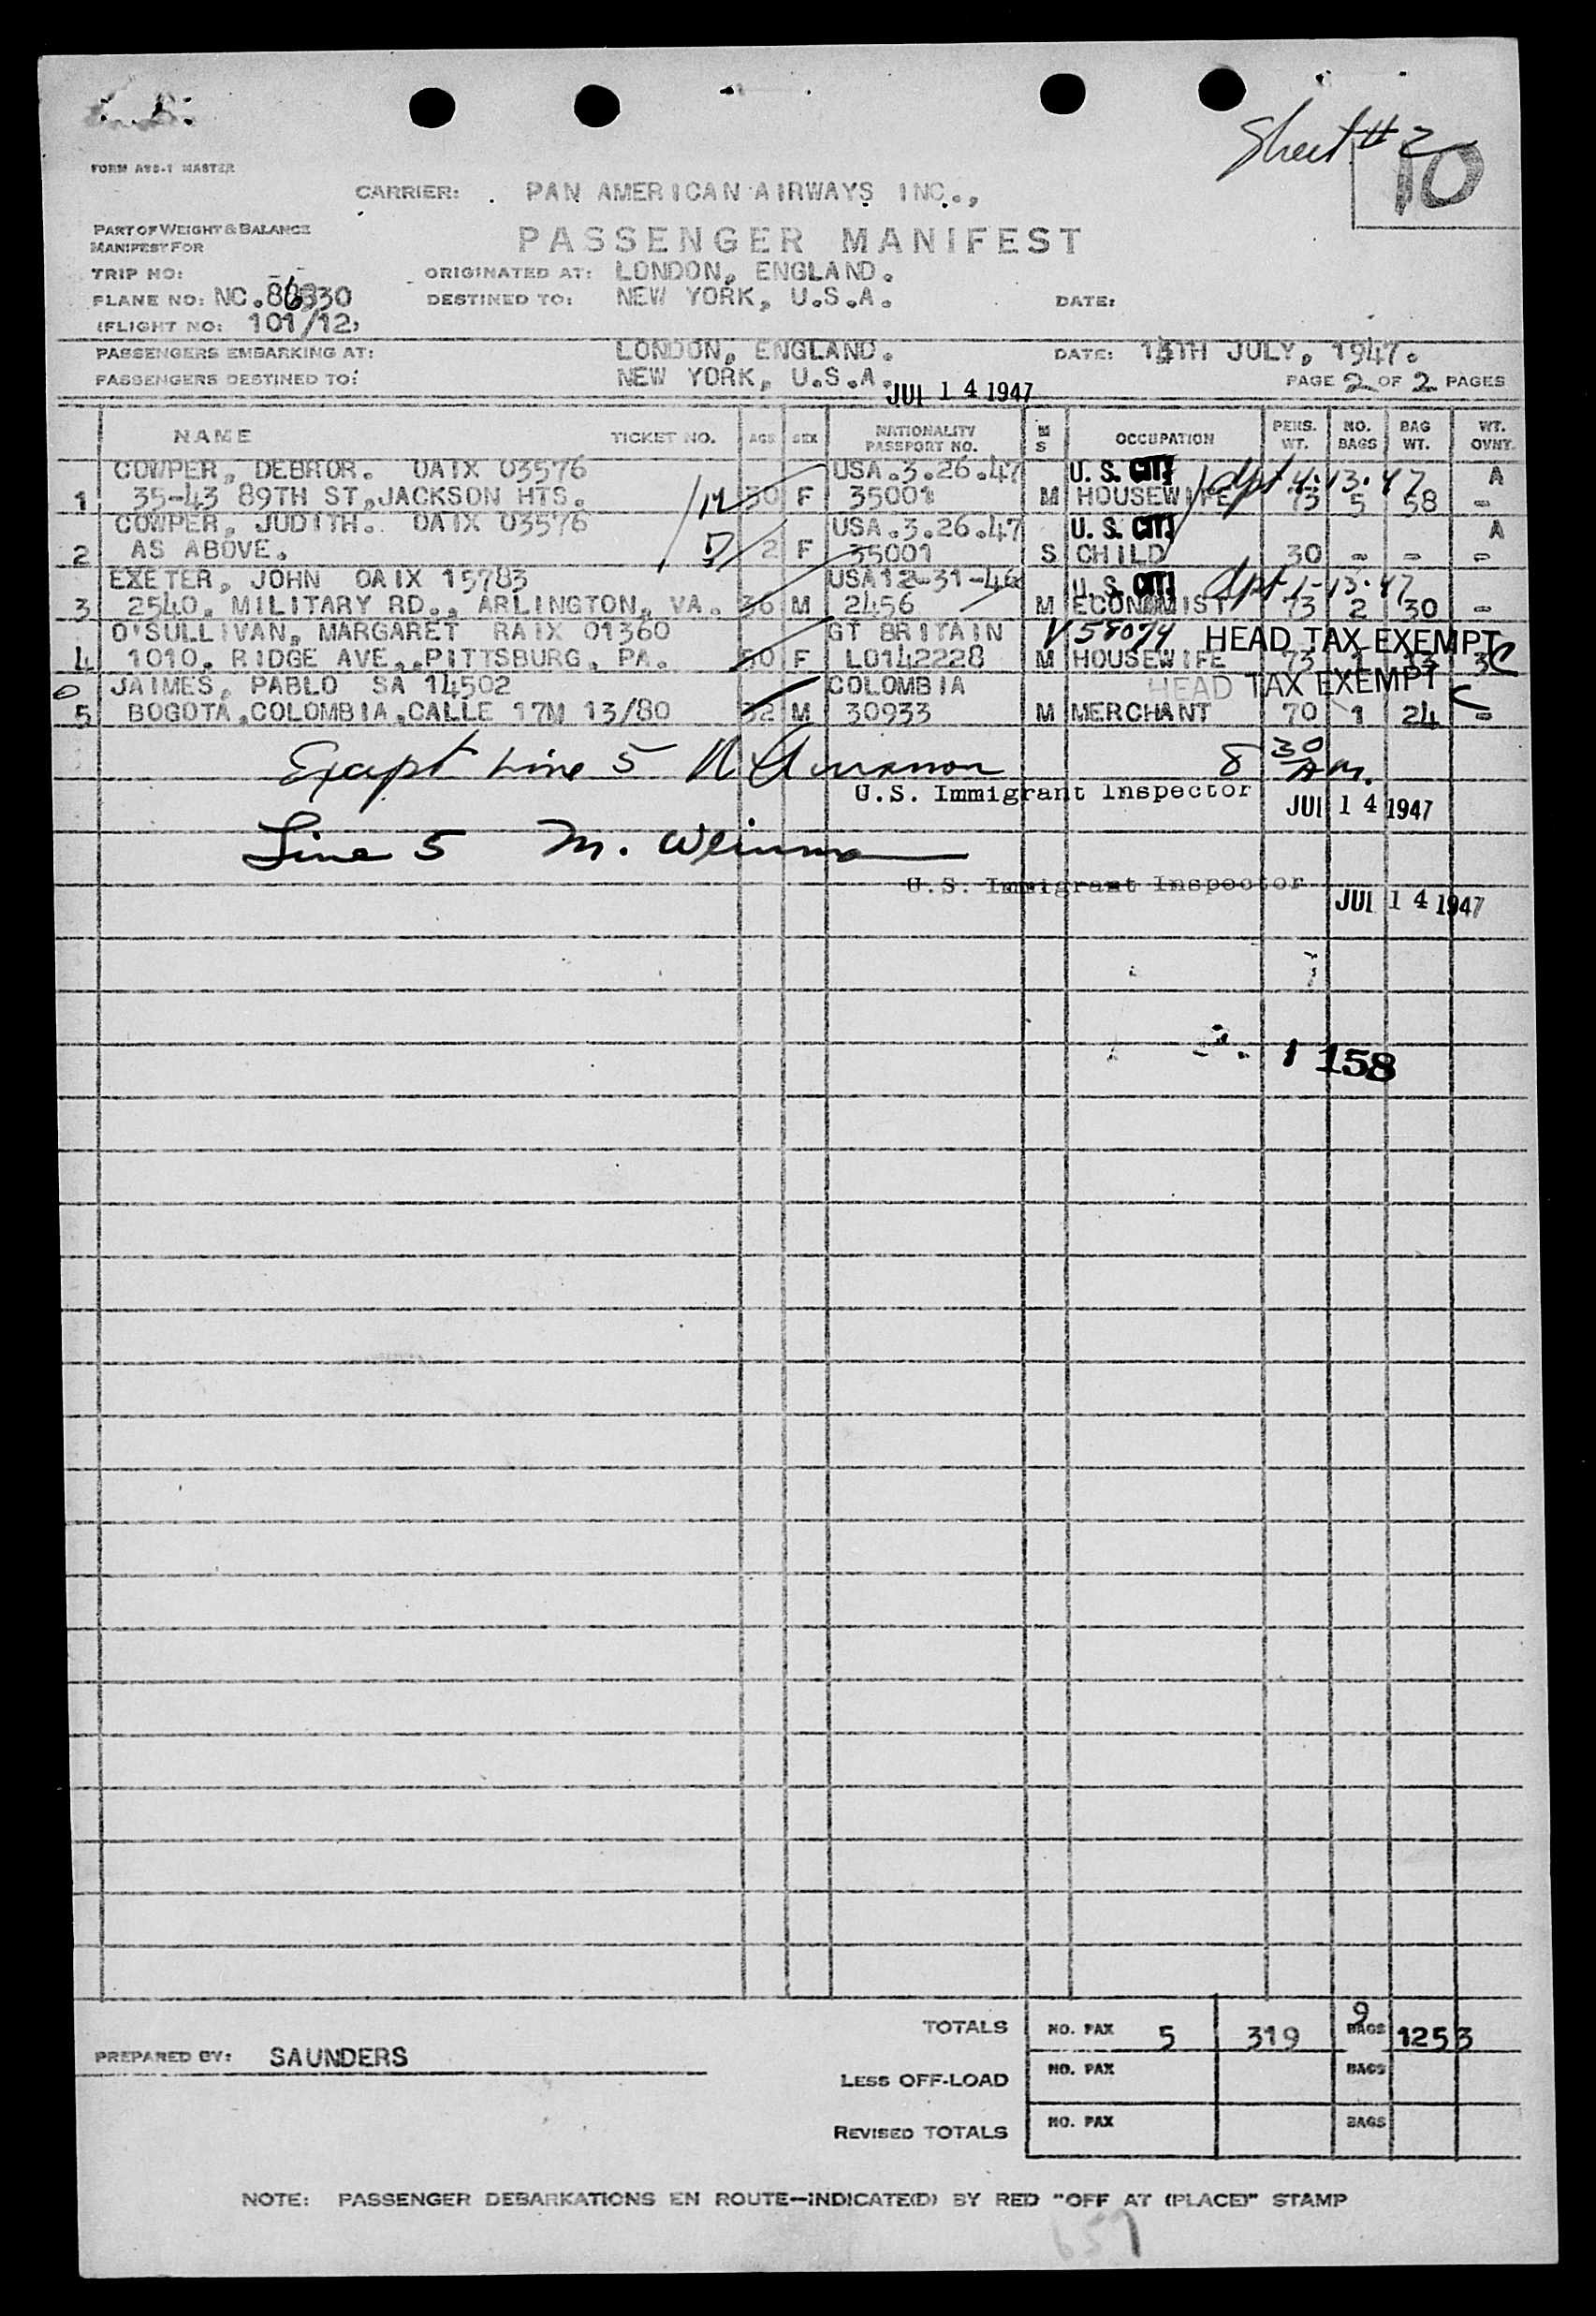 Sheet # 2
10
FORM ABS-1 MASTER
CARRIER: PAN AMERICAN AIRWAYS INC.,
PART OF WEIGHT & BALANCE
MANIFEST FOR
PASSENGER MANIFEST
TRIP NO: ORIGINATED AT: LONDON, ENGLAND.
PLANE NO: NC. DESTINED TO: NEW YORK, U.S.A. DATE:
(FLIGHT NO: 101/12)
PASSENGERS EMBARKING AT: LONDON, ENGLAND. DATE: JULY, 1947.
PASSENGERS DESTINED TO: NEW YORK, U.S.A. JUL 14 1947 PAGE 2 OF 2 PAGES
NAME TICKET NO. AGE SEX NATIONALITY PASSPORT NO. M S OCCUPATION PERS. WT. NO. BAGS BAG WT. WT. OVNT.
COWPER, OAIX 03576 USA.3.26.47 U. S. CIT. dpt 4.13.47 A
1 35-43 89TH ST,JACKSON HTS. 30 F 35001 M HOUSEWIFE 73 5 58 -
COWPER, JUDITH. OAIX 03576 USA.3.26.47 U. S. CIT. A
2 AS ABOVE. 2 F 35001 S CHILD 30 - - -
EXETER, JOHN OAIX 15783 USA12-31-46 U. S. CIT. dpt 1-13.47
3 2540. MILITARY RD., ARLINGTON, VA. 36 M 2456 M ECONOMIST 73 2 30 -
O'SULLIVAN, MARGARET RAIX 01360 GT BRITAIN V 58074 HEAD TAX EXEMPT
4 1010. RIDGE AVE,.PITTSBURG, PA. 50 F L0142228 M HOUSEWIFE 73 1 13 3
JAIMES, PABLO SA 14502 COLOMBIA HEAD TAX EXEMPT
5 BOGOTA,COLOMBIA,CALLE 17N 13/80 32 M 30933 M MERCHANT 70 1 24 -
Except Line 5 8 30 AM.
U.S. Immigrant Inspector JUL 14 1947
Line 5 M.
U.S. Immigrant Inspector JUL 14 1947
1 158
TOTALS NO. PAX 5 319 9 BAGS 125 3
PREPARED BY: SAUNDERS
LESS OFF-LOAD NO. PAX BAGS
REVISED TOTALS NO. PAX BAGS
NOTE: PASSENGER DEBARKATIONS EN ROUTE—INDICATE(D) BY RED "OFF AT (PLACE)" STAMP